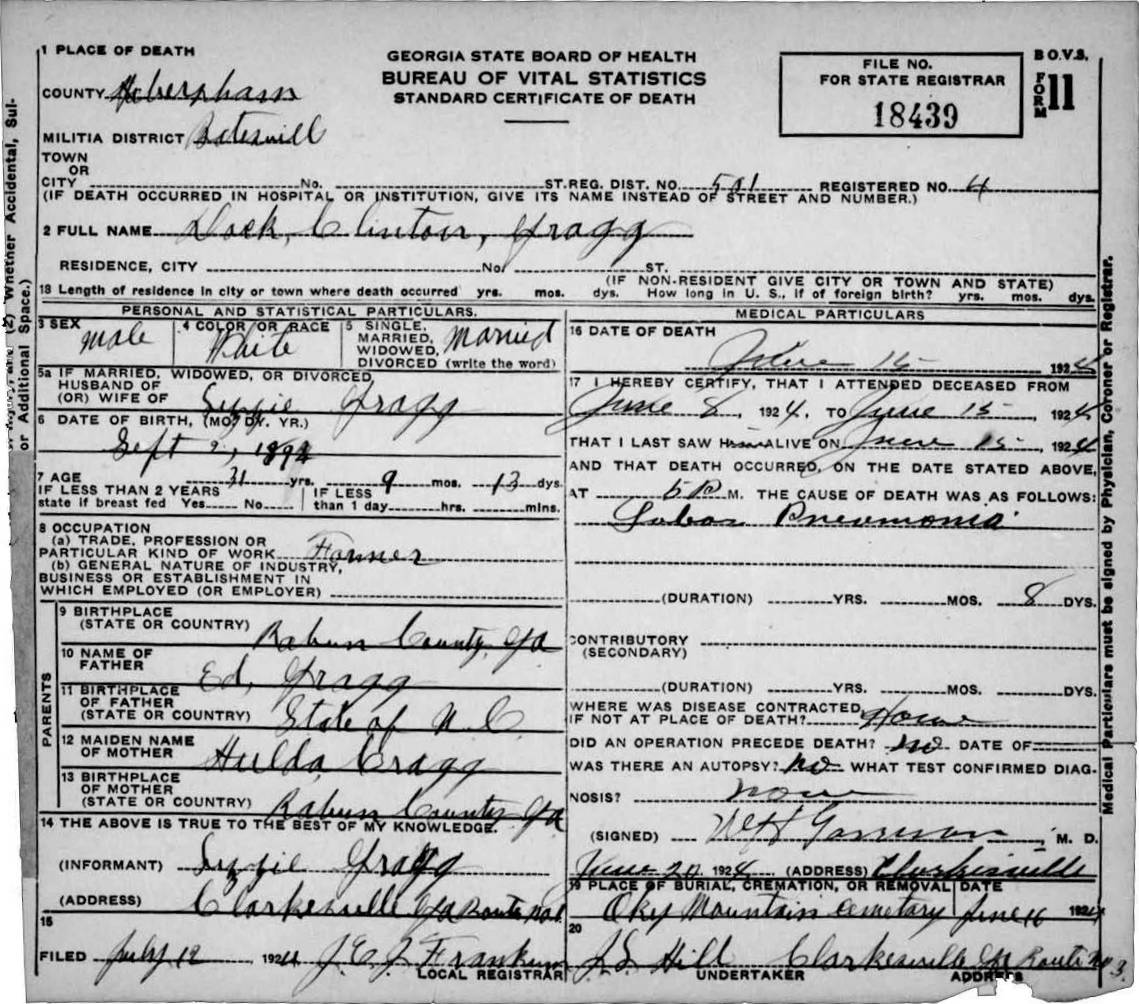 1 PLACE OF DEATH
COUNTY Habersham
MILITIA DISTRICT Batesvill
TOWN
OR
CITY No. ST. REG. DIST. NO. 501 REGISTERED NO. 4
(IF DEATH OCCURRED IN HOSPITAL OR INSTITUTION, GIVE ITS NAME INSTEAD OF STREET AND NUMBER.)
GEORGIA STATE BOARD OF HEALTH
BUREAU OF VITAL STATISTICS
STANDARD CERTIFICATE OF DEATH
FILE NO.
FOR STATE REGISTRAR
18439
B O.V.S.
FORM 11
2 FULL NAME Dock, Clinton, Fragg
RESIDENCE, CITY No. ST.
(IF NON-RESIDENT GIVE CITY OR TOWN AND STATE)
18 Length of residence in city or town where death occurred yrs. mos. dys. How long in U. S., if of foreign birth? yrs. mos. dys.
PERSONAL AND STATISTICAL PARTICULARS.
3 SEX male
4 COLOR OR RACE White
5 SINGLE,
MARRIED,
WIDOWED,
DIVORCED (write the word) Married
5a IF MARRIED, WIDOWED, OR DIVORCED
HUSBAND OF
(OR) WIFE OF Lizzie Fragg
6 DATE OF BIRTH, (MO. DY. YR.)
Sept 2, 189
7 AGE 31 yrs. 9 mos. 13 dys.
IF LESS THAN 2 YEARS
state if breast fed Yes No
IF LESS
than 1 day hrs. mins.
8 OCCUPATION
(a) TRADE, PROFESSION OR
PARTICULAR KIND OF WORK Farmer
(b) GENERAL NATURE OF INDUSTRY,
BUSINESS OR ESTABLISHMENT IN
WHICH EMPLOYED (OR EMPLOYER)
PARENTS
9 BIRTHPLACE
(STATE OR COUNTRY) Rabun County, Ga
10 NAME OF
FATHER Ed, Fragg
11 BIRTHPLACE
OF FATHER
(STATE OR COUNTRY) State of N. C
12 MAIDEN NAME
OF MOTHER Hulda, Cragg
13 BIRTHPLACE
OF MOTHER
(STATE OR COUNTRY) Rabun County Ga
14 THE ABOVE IS TRUE TO THE BEST OF MY KNOWLEDGE.
(INFORMANT) Lizzie Fragg
(ADDRESS) Clarkesville Ga Route No
15
FILED July 12 1924 J. E. J. Frankum
LOCAL REGISTRAR
MEDICAL PARTICULARS
16 DATE OF DEATH
June 15 1924
17 I HEREBY CERTIFY, THAT I ATTENDED DECEASED FROM
June 8, 1924, TO June 15, 1924
THAT I LAST SAW Him ALIVE ON June 15, 1924
AND THAT DEATH OCCURRED, ON THE DATE STATED ABOVE,
AT 5 P M. THE CAUSE OF DEATH WAS AS FOLLOWS:
Lobar Pneumonia
(DURATION) YRS. MOS. 8 DYS.
CONTRIBUTORY
(SECONDARY)
(DURATION) YRS. MOS. DYS.
WHERE WAS DISEASE CONTRACTED
IF NOT AT PLACE OF DEATH? Home
DID AN OPERATION PRECEDE DEATH? No DATE OF
WAS THERE AN AUTOPSY? No WHAT TEST CONFIRMED DIAG-
NOSIS? none
(SIGNED) WH Garrison, M. D.
June 20, 1924 (ADDRESS) Clarkesville
19 PLACE OF BURIAL, CREMATION, OR REMOVAL DATE
Mountain cemetary June 16 1924
20
J. S. Hill Clarkesville Ga Route no 3.
UNDERTAKER ADDRESS
(2) Whether Accidental, Sui-
or Additional Space.)
Medical Particulars must be signed by Physician, Coroner or Registrar.